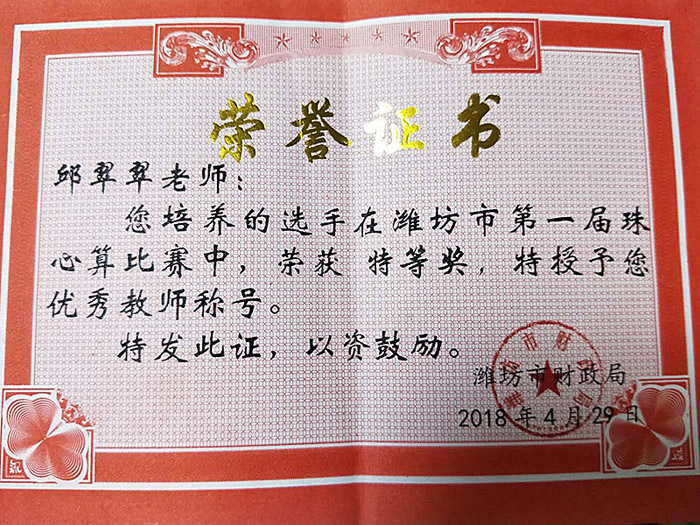 荣誉证书
邱翠翠老师：
您培养的选手在潍坊市第一届珠
心算比赛中，荣获 特等奖，特授予您
优秀教师称号。
特发此证，以资鼓励。
潍坊市财政局
潍坊市财政局
2018 年 4 月 29 日